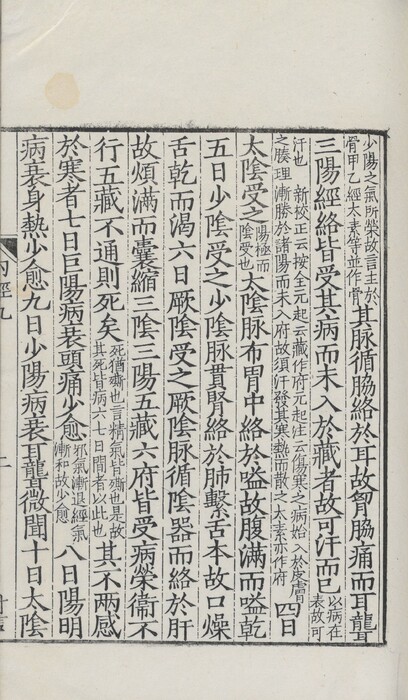 少陽之氣所榮故言主於
骨甲乙經太素等並作骨
其脉循脇絡於耳故胷脇痛而耳聾
三陽經絡皆受其病而未入於藏者故可汗而已
以病在
表故可
汗也 新校正云按全元起云藏作府元起注云傷寒之病始入於皮膚
之腠理漸勝於諸陽而未入府故須汗發其寒熱而散之太素亦作府
四日
太陰受之
陽極而
陰受也
太陰脉布胃中絡於嗌故腹滿而嗌乾
五日少陰受之少陰脉貫腎絡於肺繫舌本故口燥
舌乾而渴六日厥陰受之厥陰脉循陰器而絡於肝
故煩滿而囊縮三陰三陽五藏六府皆受病榮衞不
行五藏不通則死矣
死猶㒋也言精氣皆㒋也是故
其死皆病六七日間者以此也
其不兩感
於寒者七日巨陽病衰頭痛少愈
邪氣漸退經氣
漸和故少愈
八日陽明
病衰身熱少愈九日少陽病衰耳聾微聞十日太陰